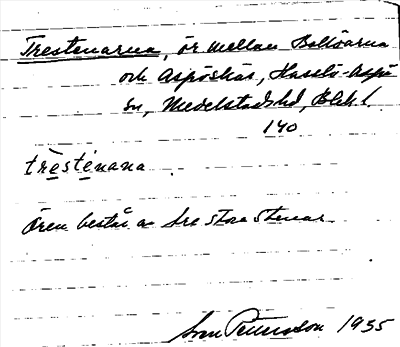 Trestenarna, ör mellan Bollöarna
och Aspöskär, Hasslö-Aspö
sn, Medelstads hd, Blek l.
140
trèsténana
Ören består av tre stora stenar
Sven Pettersson 1935